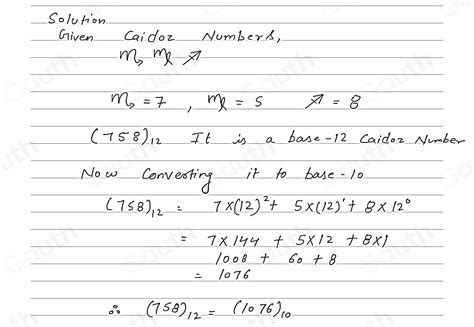 Solution
Given Caidoz Numbers,
♏, ♍ ♐
♏ = 7 , ♍ = 5 ♐ = 8
(758)₁₂ It is a base-12 Caidoz Number
Now Converting it to base-10
(758)₁₂ = 7×(12)²+ 5×(12)¹+ 8×12⁰
= 7×144 + 5×12 + 8×1
1008 + 60 + 8
= 1076
∴ (758)₁₂ = (1076)₁₀